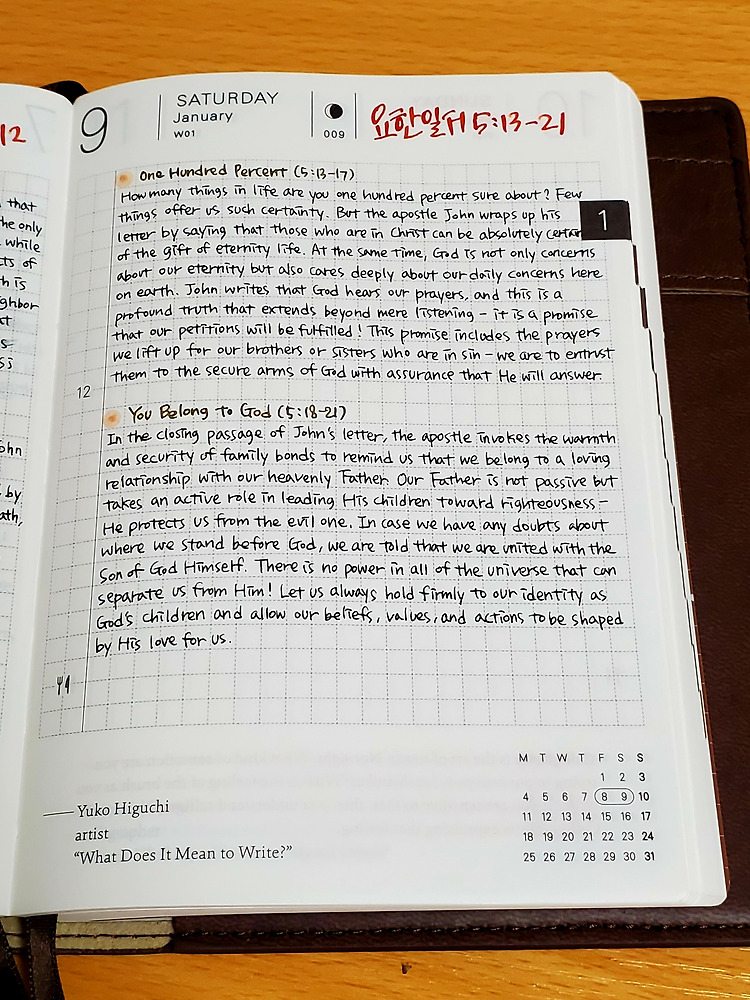 12
that
he only
while
cts of
h is
ghbor
at
s-
si
ohn
by
ath,
9
SATURDAY
January
W01
009
요한일서 5:13-21
One Hundred Percent (5:13-17)
How many things in life are you one hundred percent sure about? Few
things offer us such certainty. But the apostle John wraps up his
letter by saying that those who are in Christ can be absolutely certain
of the gift of eternity life. At the same time, God is not only concerns
about our eternity but also cares deeply about our daily concerns here
on earth. John writes that God hears our prayers, and this is a
profound truth that extends beyond mere listening - it is a promise
that our petitions will be fulfilled! This promise includes the prayers
we lift up for our brothers or sisters who are in sin - we are to entrust
them to the secure arms of God with assurance that He will answer.
1
12
You Belong to God (5:18-21)
In the closing passage of John's letter, the apostle invokes the warmth
and security of family bonds to remind us that we belong to a loving
relationship with our heavenly Father. Our Father is not passive but
takes an active role in leading His children toward righteousness-
He protects us from the evil one. In case we have any doubts about
where we stand before God, we are told that we are united with the
Son of God Himself. There is no power in all of the universe that can
separate us from Him! Let us always hold firmly to our identity as
God's children and allow our beliefs, values, and actions to be shaped
by His love for us.
Yuko Higuchi
artist
"What Does It Mean to Write?"
M T W T F S S
1 2 3
4 5 6 7 8 9 10
11 12 13 14 15 16 17
18 19 20 21 22 23 24
25 26 27 28 29 30 31